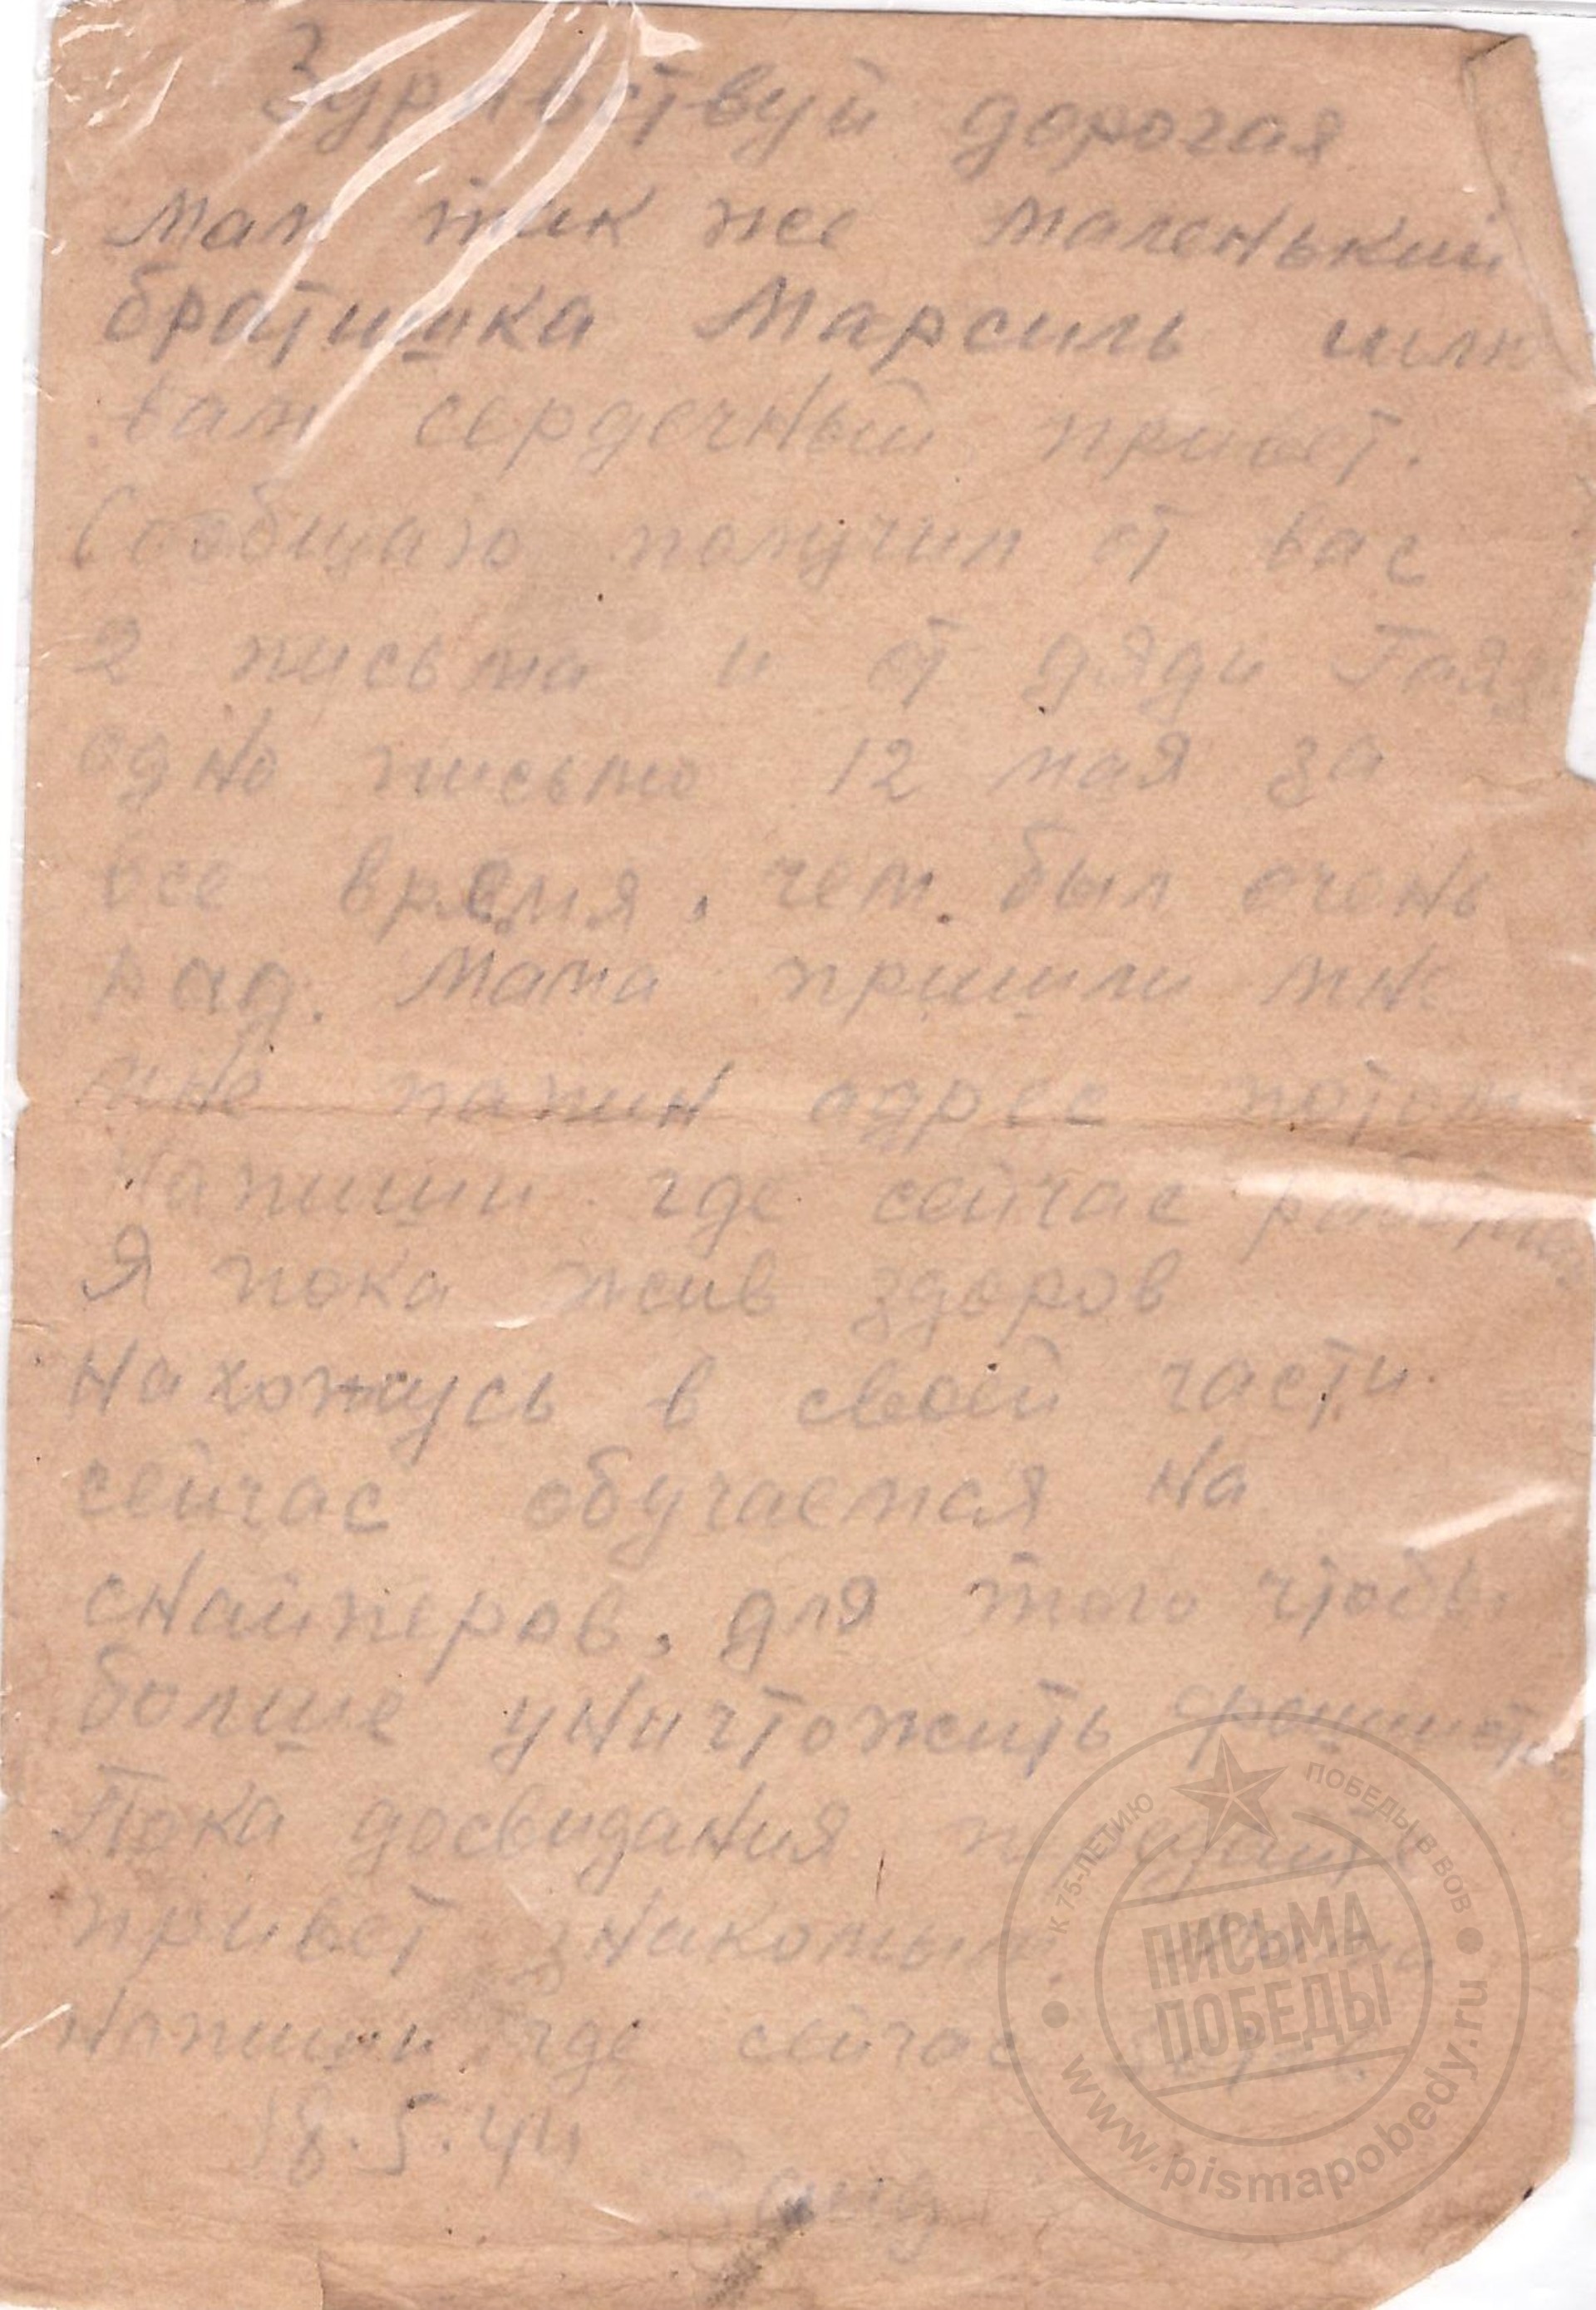 Здравствуй дорогая
Мам так же маленький
братишка Марсиль шлю
вам сердечный привет.
Сообщаю получил от вас
2 письма и от дяди
одно письмо 12 мая за
все время, чем был очень
рад. Мама пришли мне
мне папин адрес потом
Напиши где сейчас
Я пока жив здоров
Нахожусь в своей части
сейчас обучаемся на
снайперов, для того чтобы
больше уничтожить
Пока досвидания
привет знакомым.
Напиши где сейчас
18.5.44
К 75-ЛЕТИЮ ПОБЕДЫ В ВОВ
ПИСЬМА
ПОБЕДЫ
www.pismapobedy.ru